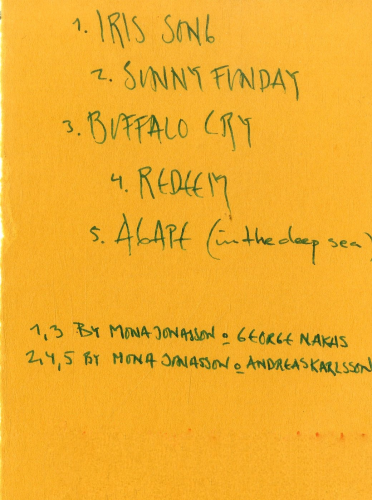 1. IRIS SONG
2. SUNNY FUNDAY
3. BUFFALO CRY
4. REDEEM
5. AGAPE (in the deep sea)
1,3 BY MONA JONASSON o GEORGE NAKHS
2,4,5 BY MONA JONASSON o ANDREAS KARLSSON